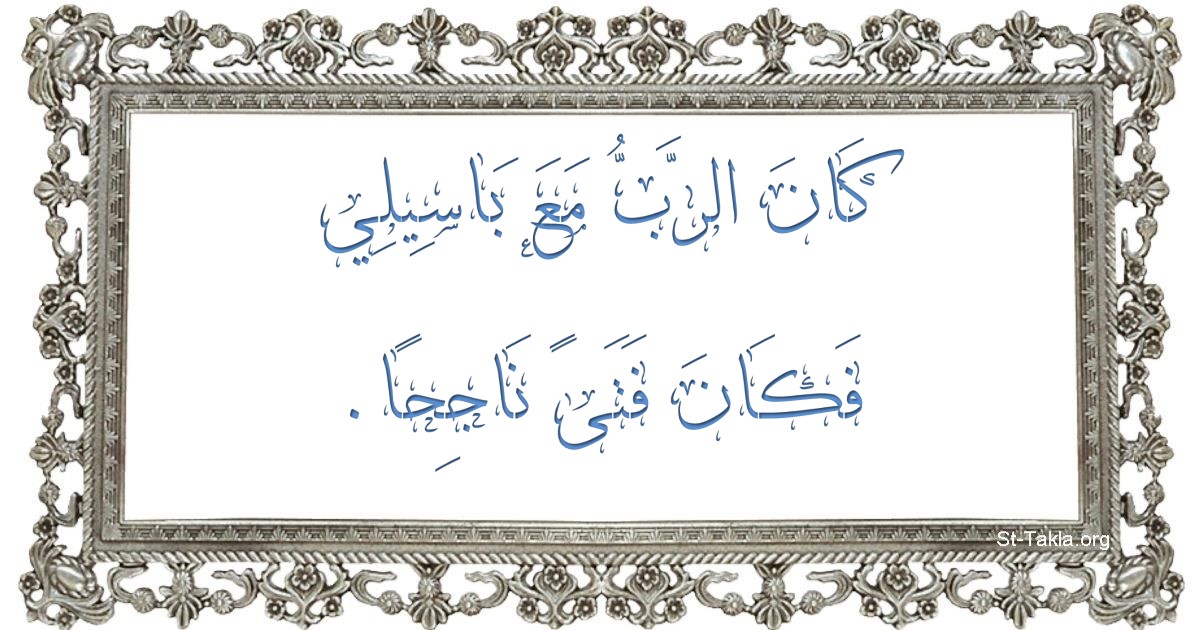 كَانَ الرَّبُّ مَعَ بَاسِيلِي
فَكَانَ فَتَىً نَاجِحًا .
St-Takla.org